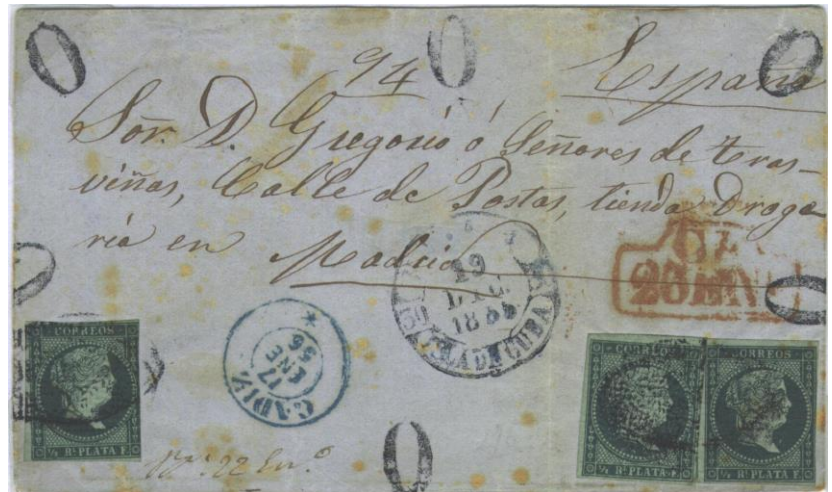 94
España
Sor. D. Gregorio ó Señores de tras-
viñas, Calle de Postas, tienda Droge
ria en Madrid
19
DIC.
CUBA
CADIZ
17
ENE
56
20 EN
CORREOS
½ Rl. PLATA F.
CORREOS
½ Rl. PLATA F.
CORREOS
½ Rl. PLATA F.
22 En.o